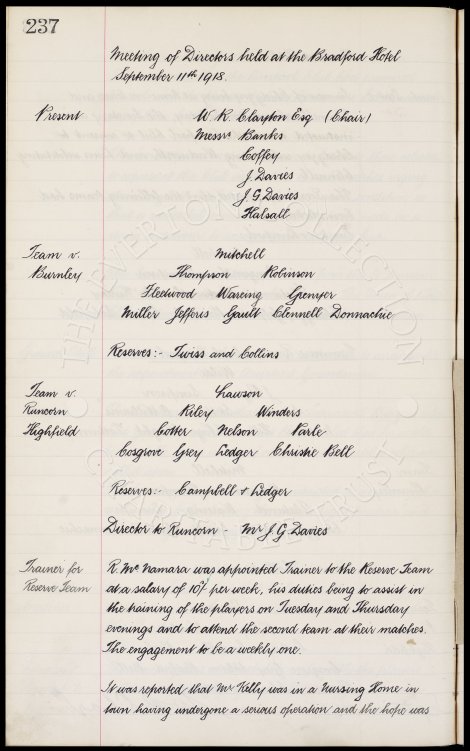 237
Meeting of Directors held at the Bradford Hotel
September 11th 1918.
Present W. R. Clayton Esq (Chair)
Messrs Banks
Coffey
J. Davies
J. G. Davies
Halsall
Team v. Mitchell
Burnley Thompson Robinson
Fleetwood Wareing Grenyer
Miller Jefferis Gault Clennell Donnachie
Reserves:- Twiss and Collins
Team v. Lawson
Runcorn Riley Winders
Highfield Cotter Nelson Parle
Cosgrove Grey Ledger Christie Bell
Reserves:- Campbell + Ledger
Director to Runcorn - Mr J. G. Davies
Trainer for R. McNamara was appointed Trainer to the Reserve Team
Reserve Team at a salary of 10/- per week, his duties being to assist in
the training of the players on Tuesday and Thursday
evenings and to attend the second team at their matches.
The engagement to be a weekly one.
It was reported that Mr Kelly was in a Nursing Home in
town having undergone a serious operation and the hope was
THE EVERTON COLLECTION
CHARITABLE TRUST